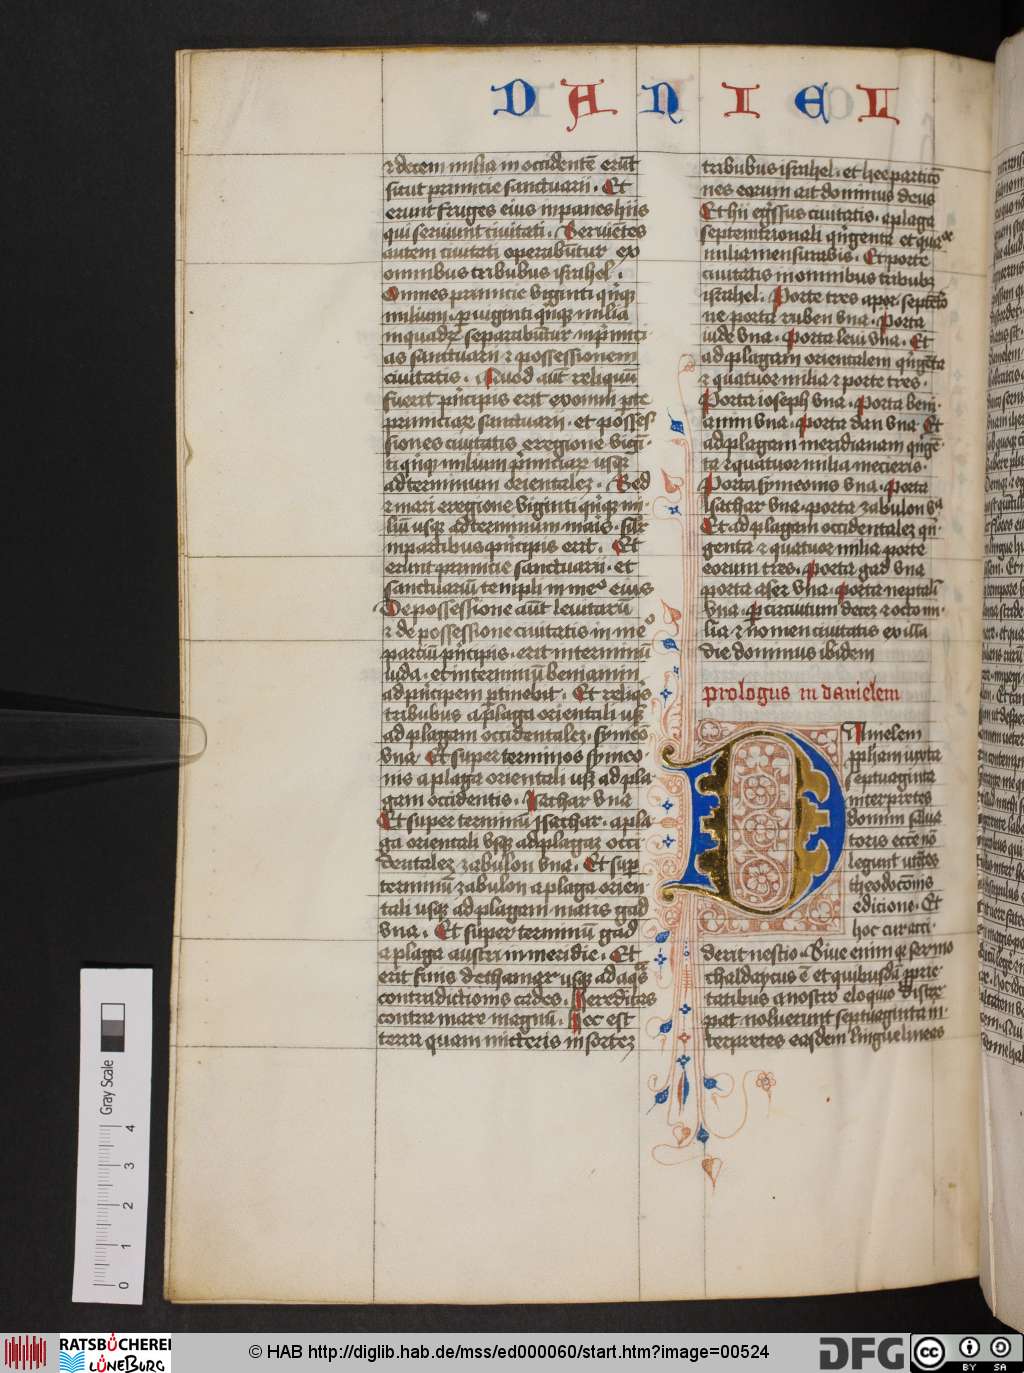 DANIEL
⁊ decem milia in occidentē erūt
sicut primicie sanctuarii . Et
erunt fruges eius in panes hiis
qui seruiunt ciuitati . Seruiētes
autem ciuitati operabūtur ex
omnibus tribubus israhel .
Omnes primicie viginti qͥnqꝫ
milium . ꝑ viginti qͥnqꝫ milia
in quadrꝫ separabūtur in pͥmici
as sanctuarii ⁊ possessionem
ciuitatis . Quod aūt reliquū
fuerit pͥncipis erit ex omni ꝑte
primiciaꝝ sanctuarii . et posses
siones ciuitatis e regione vigī
ti qͥnqꝫ milium pͥmiciaꝝ usqꝫ
ad terminum orientaleꝫ . Sed
⁊ mari e regione viginti qͥnqꝫ mi
liū usqꝫ ad terminum maͥs . sil̄r
in partibus pͥncipis erit . Et
erunt primicie sanctuarii . et
sanctuariū templi in meͦ eius
De possessione aūt leuitarū
⁊ de possessione ciuitatis in meͦ
partiū pͥncipis . erit in terminū
iuda . et in terminū beniamin
ad pͥncipem ꝑtinebit . Et reliqͥs
tribubus a plaga orientali usqꝫ
ad plagam occidentaleꝫ . symeo
vna . Et super terminos symeo
nis a plaga orientali usqꝫ ad pla
gam occidentis . Isachar vna
Et super terminū Isachar . a pla
ga orientali vsqꝫ ad plagaꝫ occi
dentaleꝫ zabulon vna . Et suꝑ
terminū zabulon a plaga orien
tali usqꝫ ad plagam maris gad
vna . Et super terminū gad
a plaga austri in meridie . Et
erit finis de thamar usqꝫ ad aqͣs
contradictionis cades . Hereditas
contra mare magnū . Hec est
terra quam mitteris in sorteꝫ
tribubus israhel . et hee particō
nes eorum ait dominus deus
Et hii egͤssus ciuitatis . a plaga
septemtrionali qͥngenta et quaͦr
milia mensurabis . Et porte
ciuitatis in omnibus tribubꝫ
israhel . Porte tres a por septētͦo
ne porta ruben vna . Porta
iude vna . Porta leui vna . Et
ad plagam orientalem qͥngēta
⁊ quatuor milia ⁊ porte tres .
Porta ioseph vna . Porta beni
amin vna . Porta dan vna Et
ad plagam meridianam qͥngē
ta ⁊ quatuor milia mecieris .
Porta symeonis vna . Porta
Isachar vna . porta zabulon vͣ
Et ad plagam occidentaleꝫ qͥn
genta ⁊ quatuor milia porte
eorum tres . Porta gad vna
porta aser vna . Porta neptalī
vna . ꝑ circuitum deceꝫ ⁊ octo mi
lia ⁊ nomen ciuitatis ex illa
die dominus ibidem
prologus in danielem
DAnielem
ꝓpham iuxta
septuaginta
interpretes
domini salua
toris eccē nō
legunt utētes
theodocōnis
edicione . Et
hoc cur acci
derit nescio . Siue enim qꝛ sermo
chaldaycus ē et quibusdā ꝓprie
tatibus a nostro eloquio discre
pat . noluerunt septuaginta in
terpretes easdem lingue lineas
Gray Scale
0 1 2 3 4
RATSBÜCHEREI
LÜNEBURG
© HAB http://diglib.hab.de/mss/ed000060/start.htm?image=00524
DFG
cc BY SA